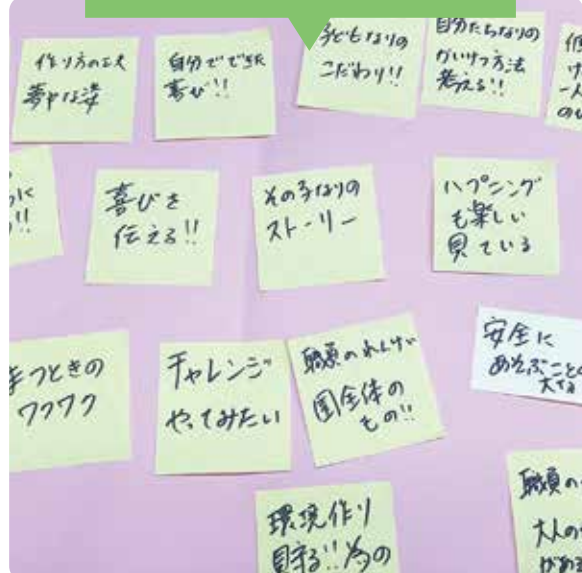 作り方の工夫
夢中な姿
自分でできた
喜び!!
子どもなりの
こだわり!!
自分たちなりの
かいけつ方法
考える!!
喜びを
伝える!!
その子なりの
ストーリー
ハプニング
も楽しい
見ている
まつときの
ワクワク
チャレンジ
やってみたい
職員のれんけい
園全体の
もの!!
安全に
あそぶことの
環境作り
見守る!!為の
職員の
大人の
がある